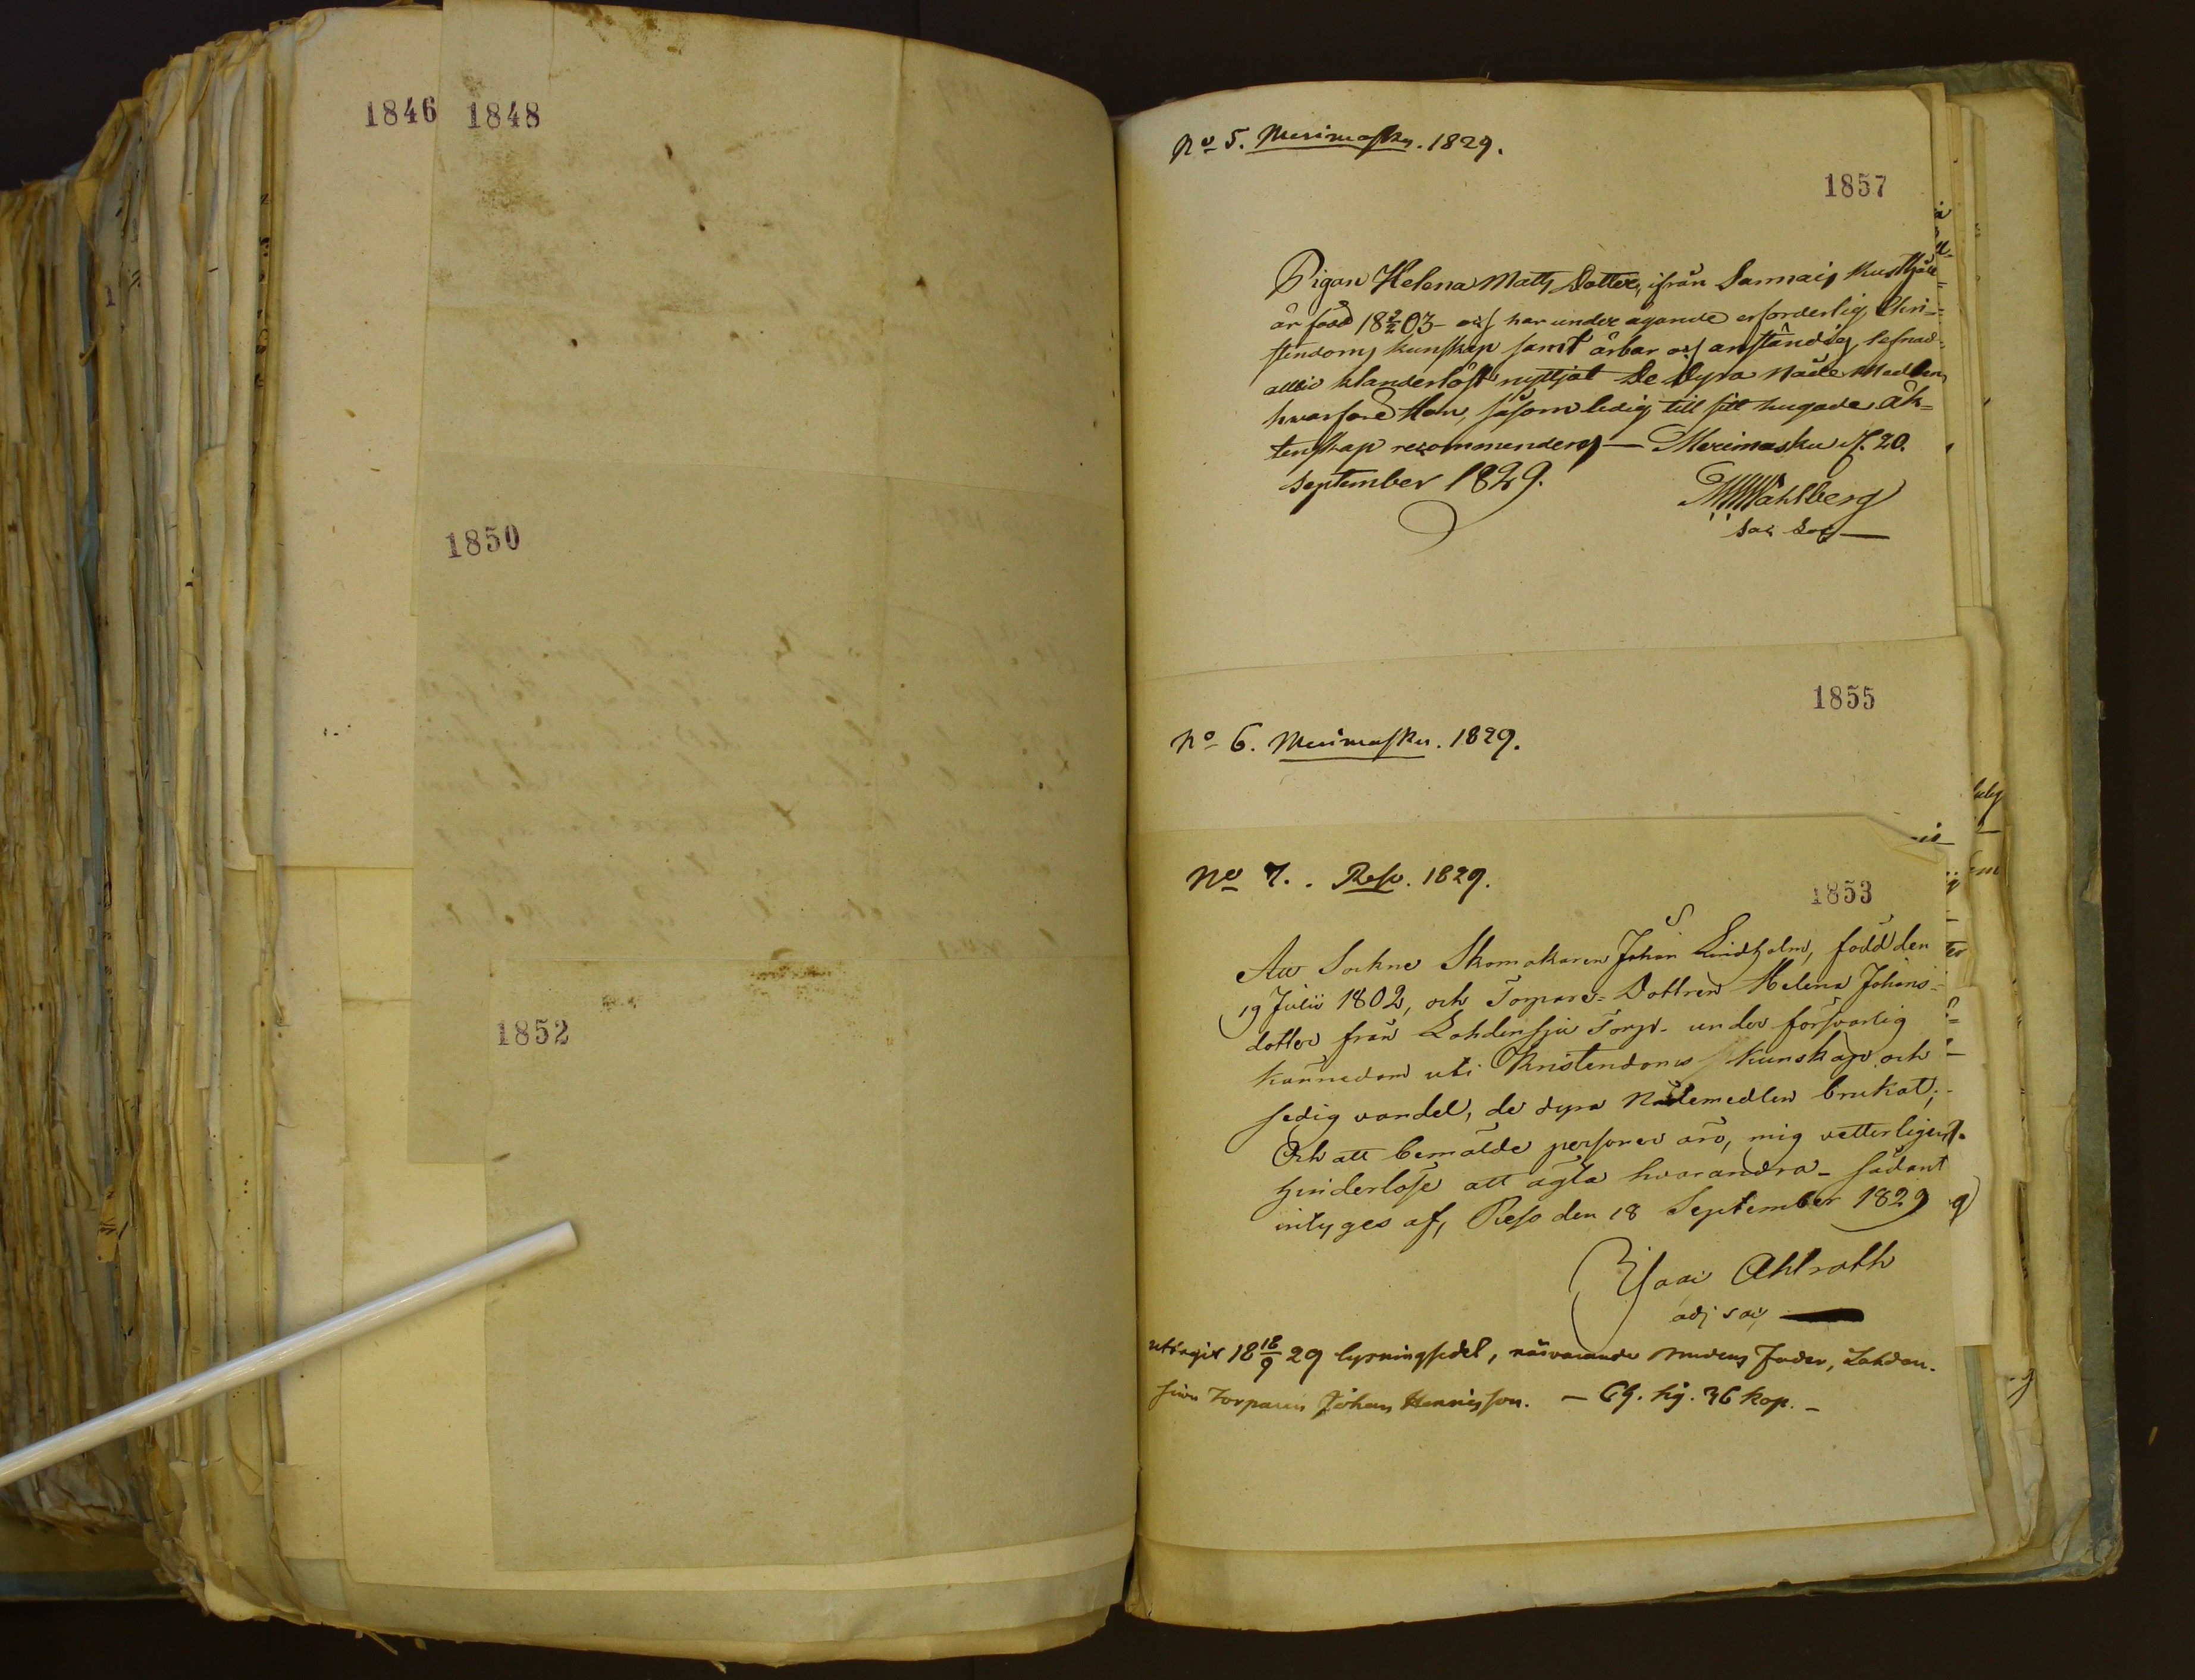 1846 1848
1850
1852
No 5. Merimasku. 1829.
1857
Pigan Helena Matts Dotter, ifrån Sannais
är född 18 2/2 03 - och har under ägande erforderlig Chri=
stendoms kunskap samt ärbar och anständig lefnad
alltid klanderlöst nyttjat De Dyra Nåde Medlen
hvarföre Hon, såsom ledig till sitt hugade Äk=
tenskap recommenderas — Merimasku d. 20.
September 1829.
Wahlberg
Sac
1855
No 6. Merimasku. 1829.
No 7. Reso. 1829.
1853
Att Sockne Skomakaren Johan Lindholm, född den
19 Julii 1802, och Torpare=Dottren Helena Johans=
dotter från Lahdensju Torp - under försvarlig
kännedom uti Kristendoms kunskap och
sedig vandel, de dyra Nådemedlen brukat; -
Och att bemälde personer äro, mig vetterligen
hinderlöse att ägta hvarandra - sådant
intyges af, Reso den 18 September 1829
Isaac Ahlroth
adj sac
uttagit 18 18/9 29 lysningssedel, närvarande brudens Fader, Lahden-
siun Torparen Johan Henricsson. — 36 kop. -